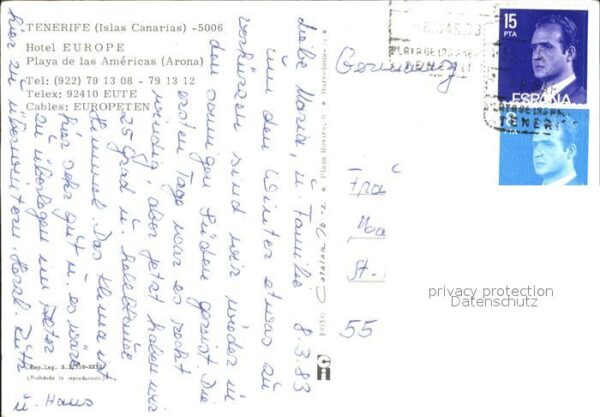 TENERIFE (Islas Canarias) -5006
Hotel EUROPE
Playa de las Américas (Arona)
Tel: (922) 79 13 08 - 79 13 12
Telex: 92410 EUTE
Cables: EUROPETEN
8.3.83
Liebe Maria, u. Familie
um den Winter etwas zu
verkürzen sind wir wieder in
den sonnigen Süden gereist. Die
ersten Tage war es recht
windig, aber jetzt haben wir
25 Grad u. hellblauen
Himmel. Das Klima ist
hier sehr gut u. es wäre
zu überlegen im Alter
hier zu überwintern. Herzl. Ruth
u. Hans
Dep. Leg. B.
(Prohibida la reproducción)
FOTO
Barcelona
Germany
Fra
St.
55
15
PTA
ESPAÑA
PLAYA DE LAS
TENERIFE
privacy protection
Datenschutz